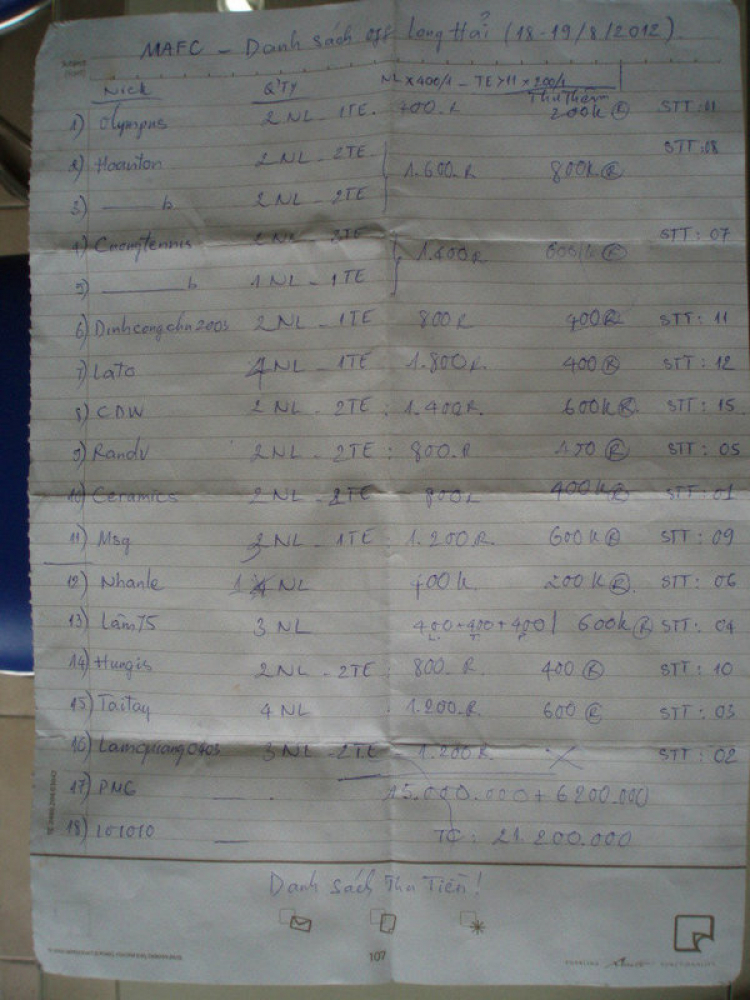 MAFC - Danh sách off Long Hải (18-19/8/2012).
Nick Q'TY NL x 400/1 - TE >11 x 200/1
Thu Thêm
1) Olympus 2 NL - 1TE. 700.R 200k (R) STT: 11
2) Hoanton 2 NL - 2TE STT: 08
1.600.R 800k (R)
3) ——— b 2 NL - 2TE
4) Cuongtennis 2 NL - 3TE STT: 07
1.400R 600k (R)
5) ——— b 1 NL - 1TE
6) Dinhcongchn2003 2 NL - 1TE 800R 400R STT: 11
7) Lato 4 NL - 1TE 1.800R. 400 (R) STT: 12
8) CDW 2 NL - 2TE : 1.400R. 600k (R) STT: 15
9) Randv 2 NL - 2TE : 800.R (R) STT: 05
10) Ceramics 2 NL - 2TE 800R 400k (R) STT: 01
11) Msg 3 NL - 1TE 1.200R. 600k (R) STT: 09
12) Nhanle 1 NL 400k. 200k (R) STT: 06
13) Lâm75 3 NL 400+400+400 600k (R) STT: 04
14) Hungis 2 NL - 2TE : 800.R 400 (R) STT: 10
15) Taitay 4 NL 1.200.R. 600 (R) STT: 03
16) Lamquang0403 3 NL - 2TE 1.200R. X STT: 02
17) PMG ——— . 15.000.000 + 6200.000
18) 101010 ——— TC : 21.200.000
Danh sách Thu Tiền!
107